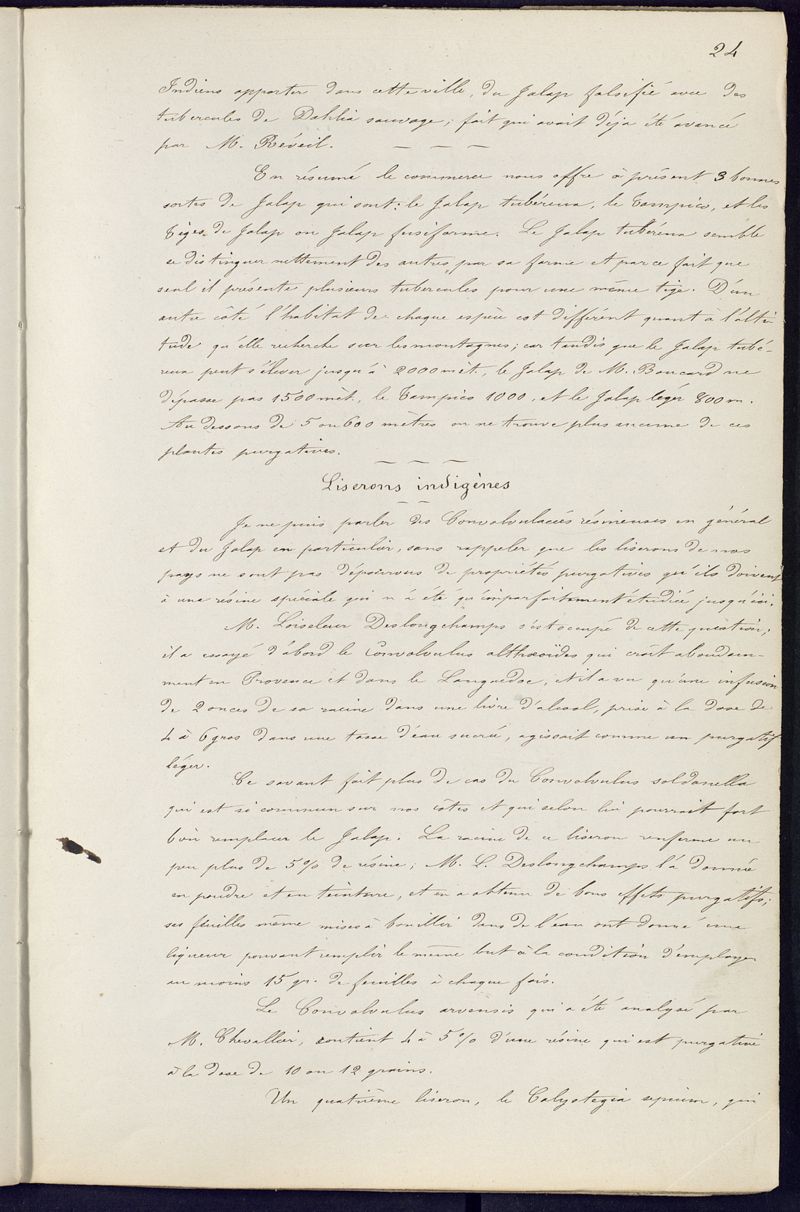 24
Indiens apporter dans cette ville, du Jalap falsifié avec des
tubercules de Dahlia sauvage; fait qui avait déja été avancé
par M. Réveil.
En résumé le commerce nous offre à présent 3 bonnes
sortes de Jalap qui sont: le Jalap tubéreux, le Tampico, et les
tiges de Jalap ou Jalap fusiforme. Le Jalap tubéreux semble
se distinguer nettement des autres par sa forme et par ce fait que
seul il présente plusieurs tubercules pour une même tige. D'un
autre côté l'habitat de chaque espèce est différent quant à l'alti-
tude qu'elle recherche sur les montagnes; car tandis que le Jalap tubé-
reux peut s'élever jusqu'à 2000 mèt., le Jalap de M. Boucard ne
dépasse pas 1500 mèt., le Tampico 1000, et le Jalap léger 800 m.
Au dessous de 5 ou 600 mètres on ne trouve plus aucune de ces
plantes purgatives.
Liserons indigènes
Je ne puis parler des Convolvulacées résineuses en général
et du Jalap en particulier, sans rappeler que les liserons de nos
pays ne sont pas dépourvus de propriétés purgatives qu'ils doivent
à une résine spéciale qui n'a été qu'imparfaitement étudiée jusqu'ici.
M. Loiseleur Deslongchamps s'est occupé de cette question;
il a essayé d'abord le Convolvulus althæoïdes qui croît abondam-
ment en Provence et dans le Languedoc, et il a vu qu'une infusion
de 2 onces de sa racine dans une livre d'alcool, prise à la dose de
4 à 6 gros dans une tasse d'eau sucrée, agissait comme un purgatif
léger.
Ce savant fait plus de cas du Convolvulus soldanella
qui est si commun sur nos côtes et qui selon lui pourrait fort
bien remplacer le Jalap. La racine de ce liseron renferme un
peu plus de 5% de résine; M. L. Deslongchamps l'a donnée
en poudre et en teinture, et en a obtenu de bons effets purgatifs;
ses feuilles même mises à bouillir dans de l'eau ont donné une
liqueur pouvant remplir le même but à la condition d'employer
au moins 15 gr. de feuilles à chaque fois.
Le Convolvulus arvensis qui a été analysé par
M. Chevallier, contient 4 à 5% d'une résine qui est purgative
à la dose de 10 ou 12 grains.
Un quatrième liseron, le Calystegia sepium, qui